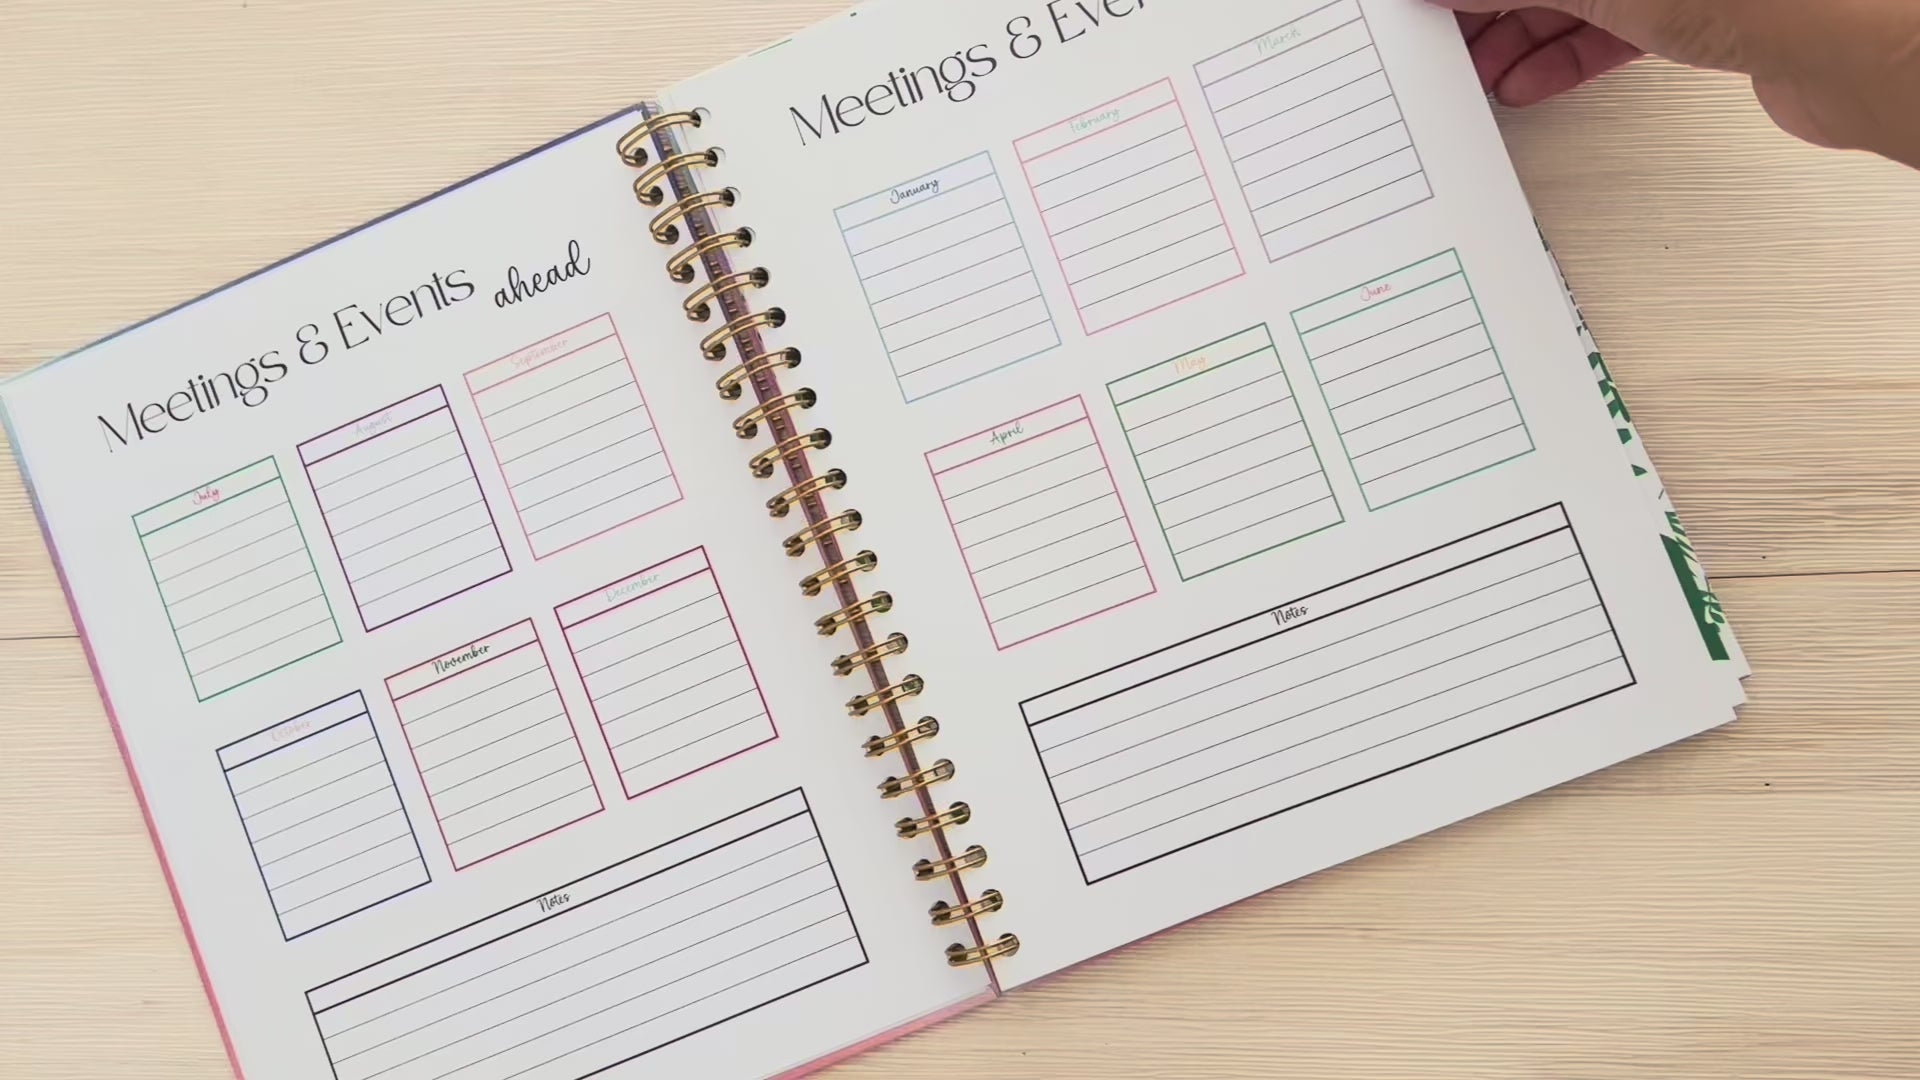 Meetings & Events ahead
July
August
September
October
November
December
Notes
Meetings & Eve
January
February
March
April
May
June
Notes